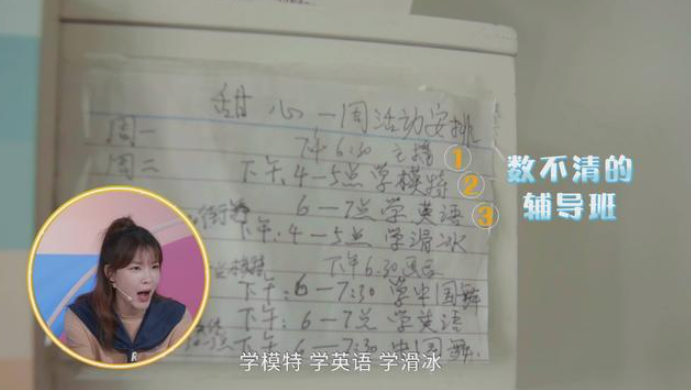 甜心一周活动安排
周一 下午6:30 主播 ①
周二 下午:4—5点 学模特 ②
6—7点学英语 ③
下午:4—5点 学滑冰
下午6:30
下午:6—7:30 学中国舞
下午:6—7点 学英语
下午:6—7:30 中国舞
数不清的
辅导班
R
学模特 学英语 学滑冰